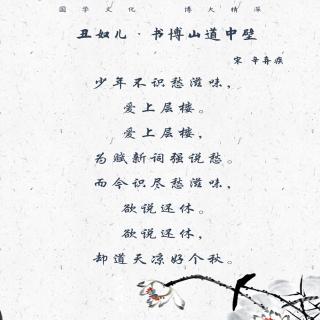 国学文化 博大精深
丑奴儿·书博山道中壁
宋 辛弃疾
少年不识愁滋味，
爱上层楼。
爱上层楼，
为赋新词强说愁。
而今识尽愁滋味，
欲说还休。
欲说还休，
却道天凉好个秋。